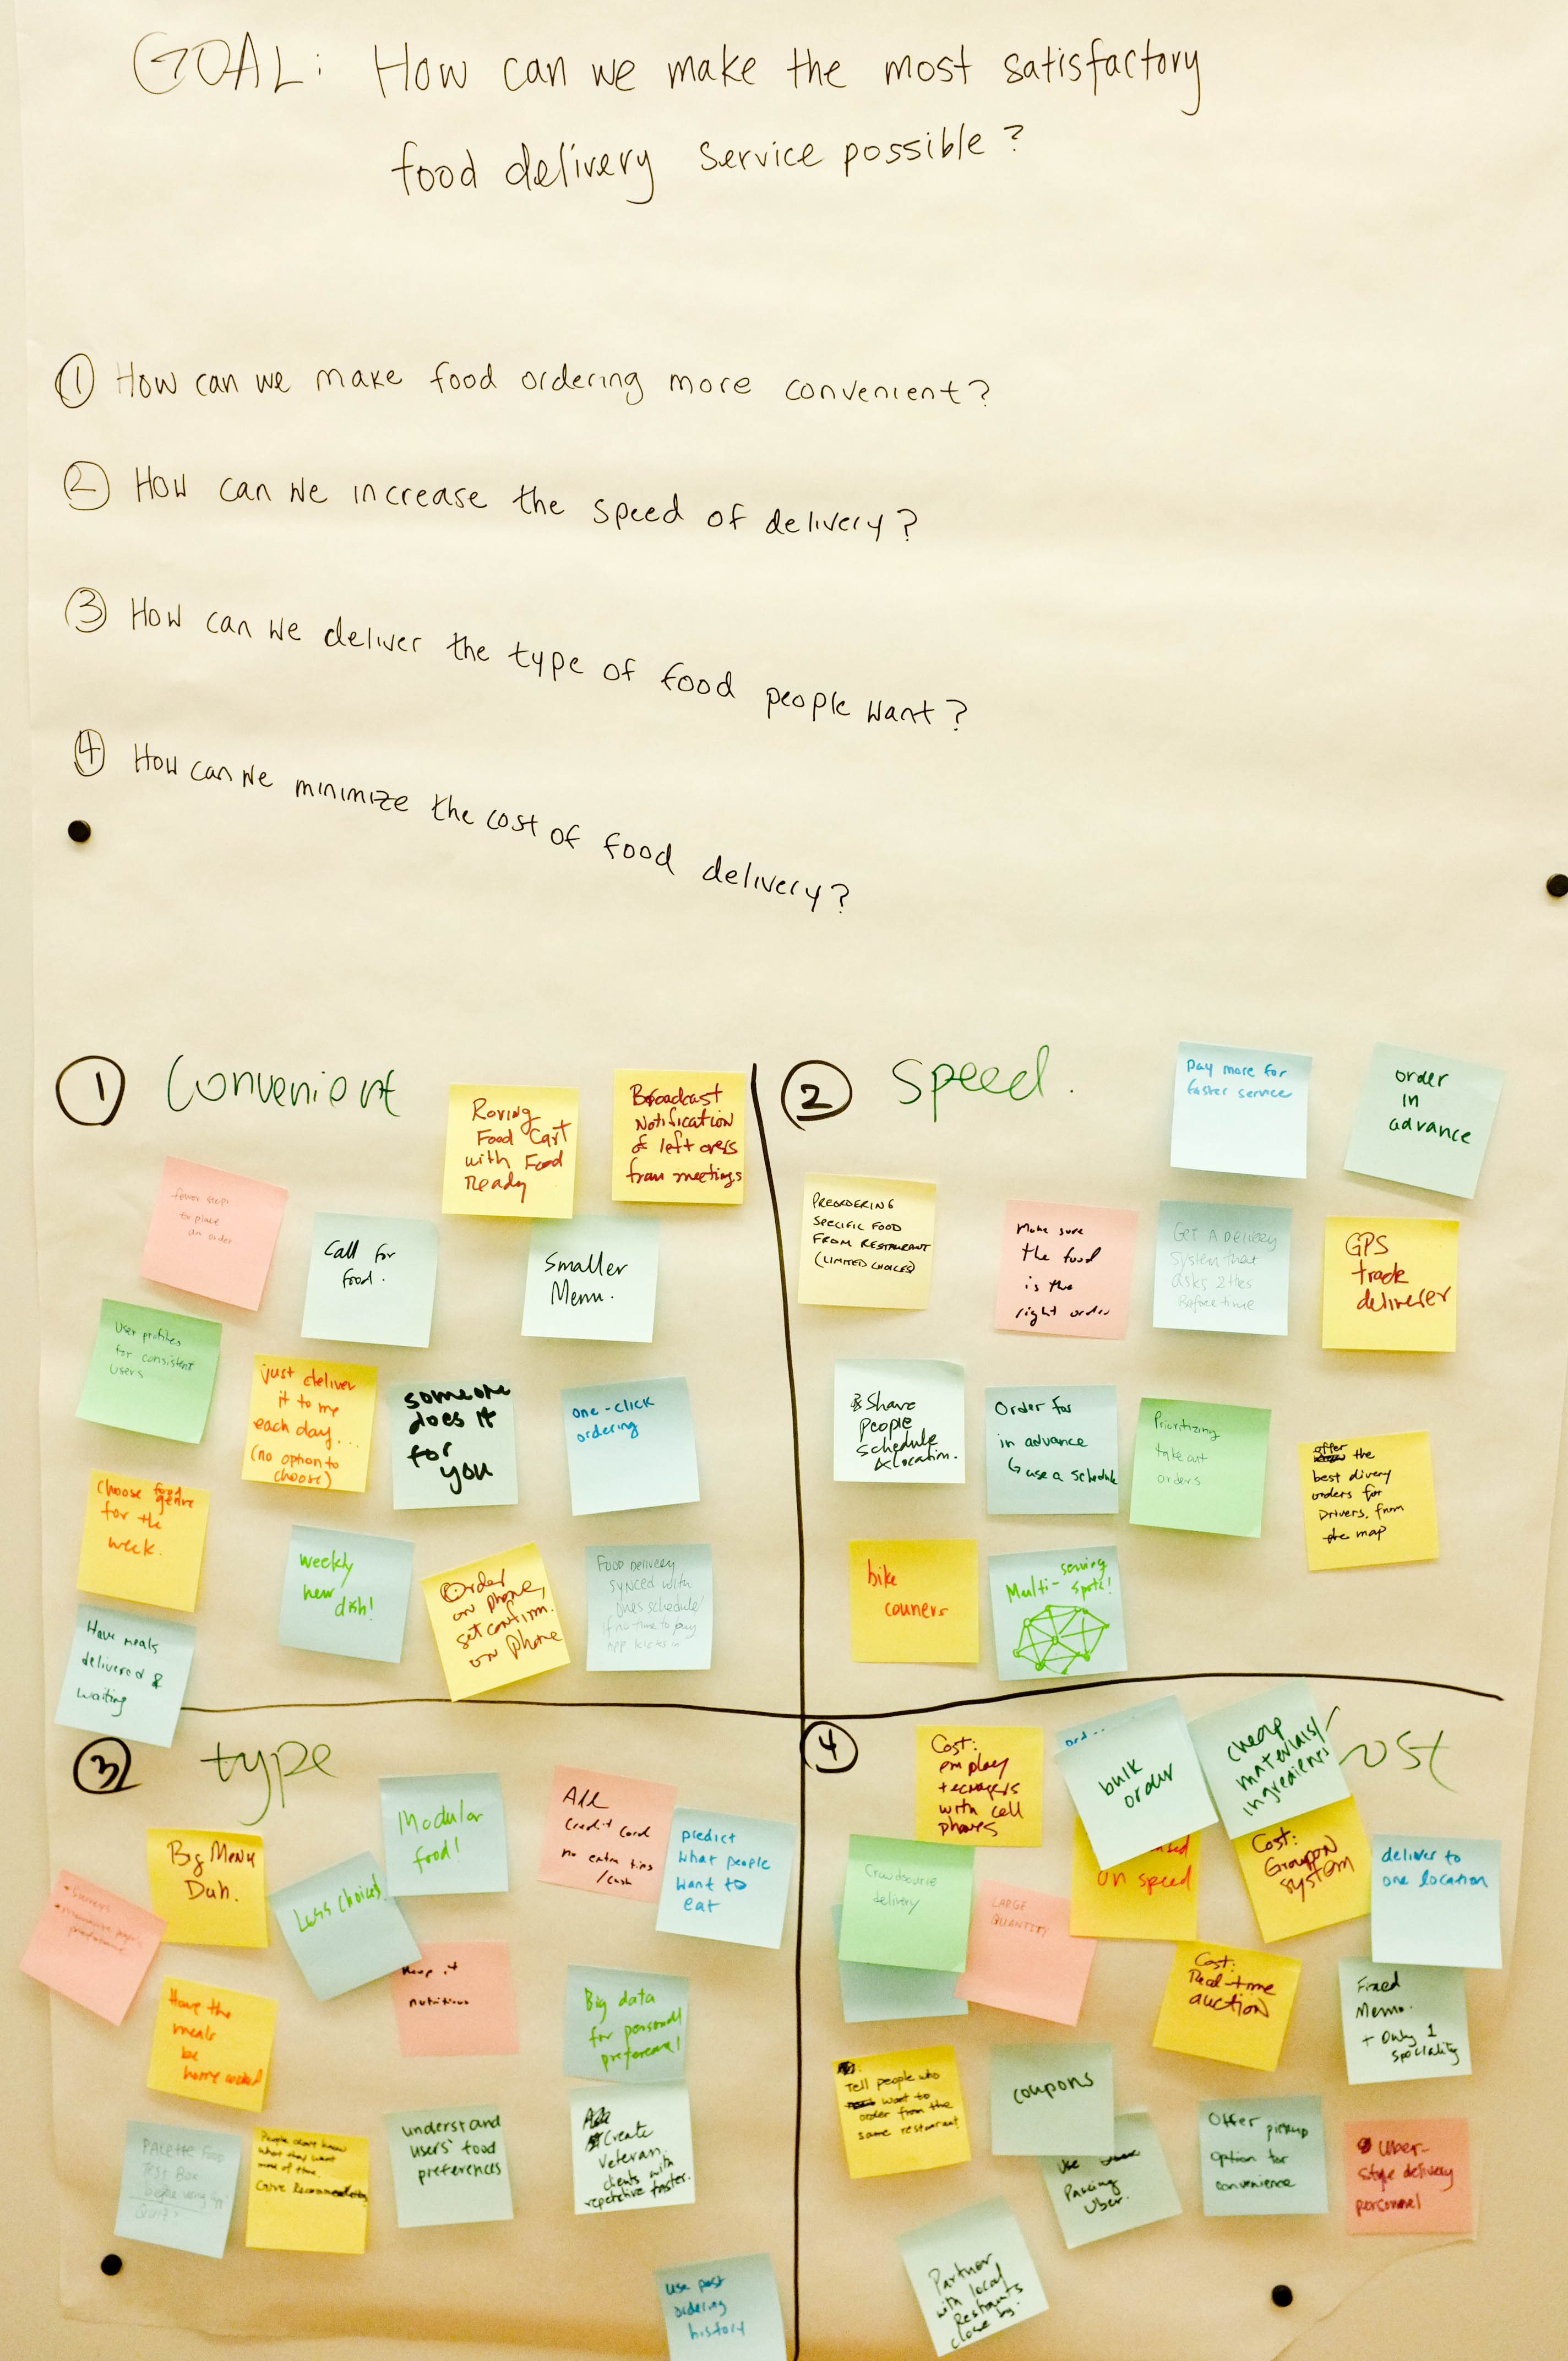 GOAL: How can we make the most satisfactory
food delivery service possible?
① How can we make food ordering more convenient?
② How can we increase the speed of delivery?
③ How can we deliver the type of food people want?
④ How can we minimize the cost of food delivery?
① Convenient
Roving
Food Cart
with Food
Ready
Broadcast
Notification
of left overs
from meetings
fewer steps
to place
an order
Call for
food.
Smaller
Menu.
User profiles
for consistent
users
just deliver
it to me
each day...
(no option to
choose)
someone
does it
for
you
one-click
ordering
Choose food
genre
for the
week.
weekly
new
dish!
Order
on phone,
set confirm.
on phone
Food delivery
synced with
ones schedule/
if no time to
app kicks in
Have meals
delivered &
waiting
② Speed.
Pay more for
faster service
order
in
advance
PREORDERING
SPECIFIC FOOD
FROM RESTAURANT
(LIMITED CHOICES)
Make sure
the food
is the
right order
Get A Delivery
System that
asks
Before time
GPS
track
deliverer
Share
people
schedule
& location.
Order for
in advance
↳ use a schedule
Prioritizing
take out
orders
offer the
best divery
orders for
Drivers. from
the map
bike
couriers
Multi-serving
spots!
③ type
Big Menu
Duh.
Less choices!
Modular
food!
Add
credit card
no extra tips
/cash
predict
what people
want to
eat
Have the
meals
be
home cooked
keep it
nutritious
Big data
for personal
preference!
PALETTE Food
Test Box
People dont know
what they want
most of time.
Give Recommendations
understand
users' food
preferences
Create
Veteran
clients with
repetetive faster.
use past
ordering
history
④ Cost
Cost:
employ
teenagers
with cell
phones
ord...
bulk
order
cheap
materials/
ingredients
Crowdsource
delivery
LARGE
QUANTITY
on speed
Cost:
Groupon
system
deliver to
one location
Cost:
Real-time
auction
Fixed
Menu.
+ Only 1
speciality
Tell people who
want to
order from the
same restaurant
coupons
Use
Passing
Uber.
Offer pickup
option for
convenience
Uber-
style delivery
personnel
Partner
with local
Restraunts
close by.